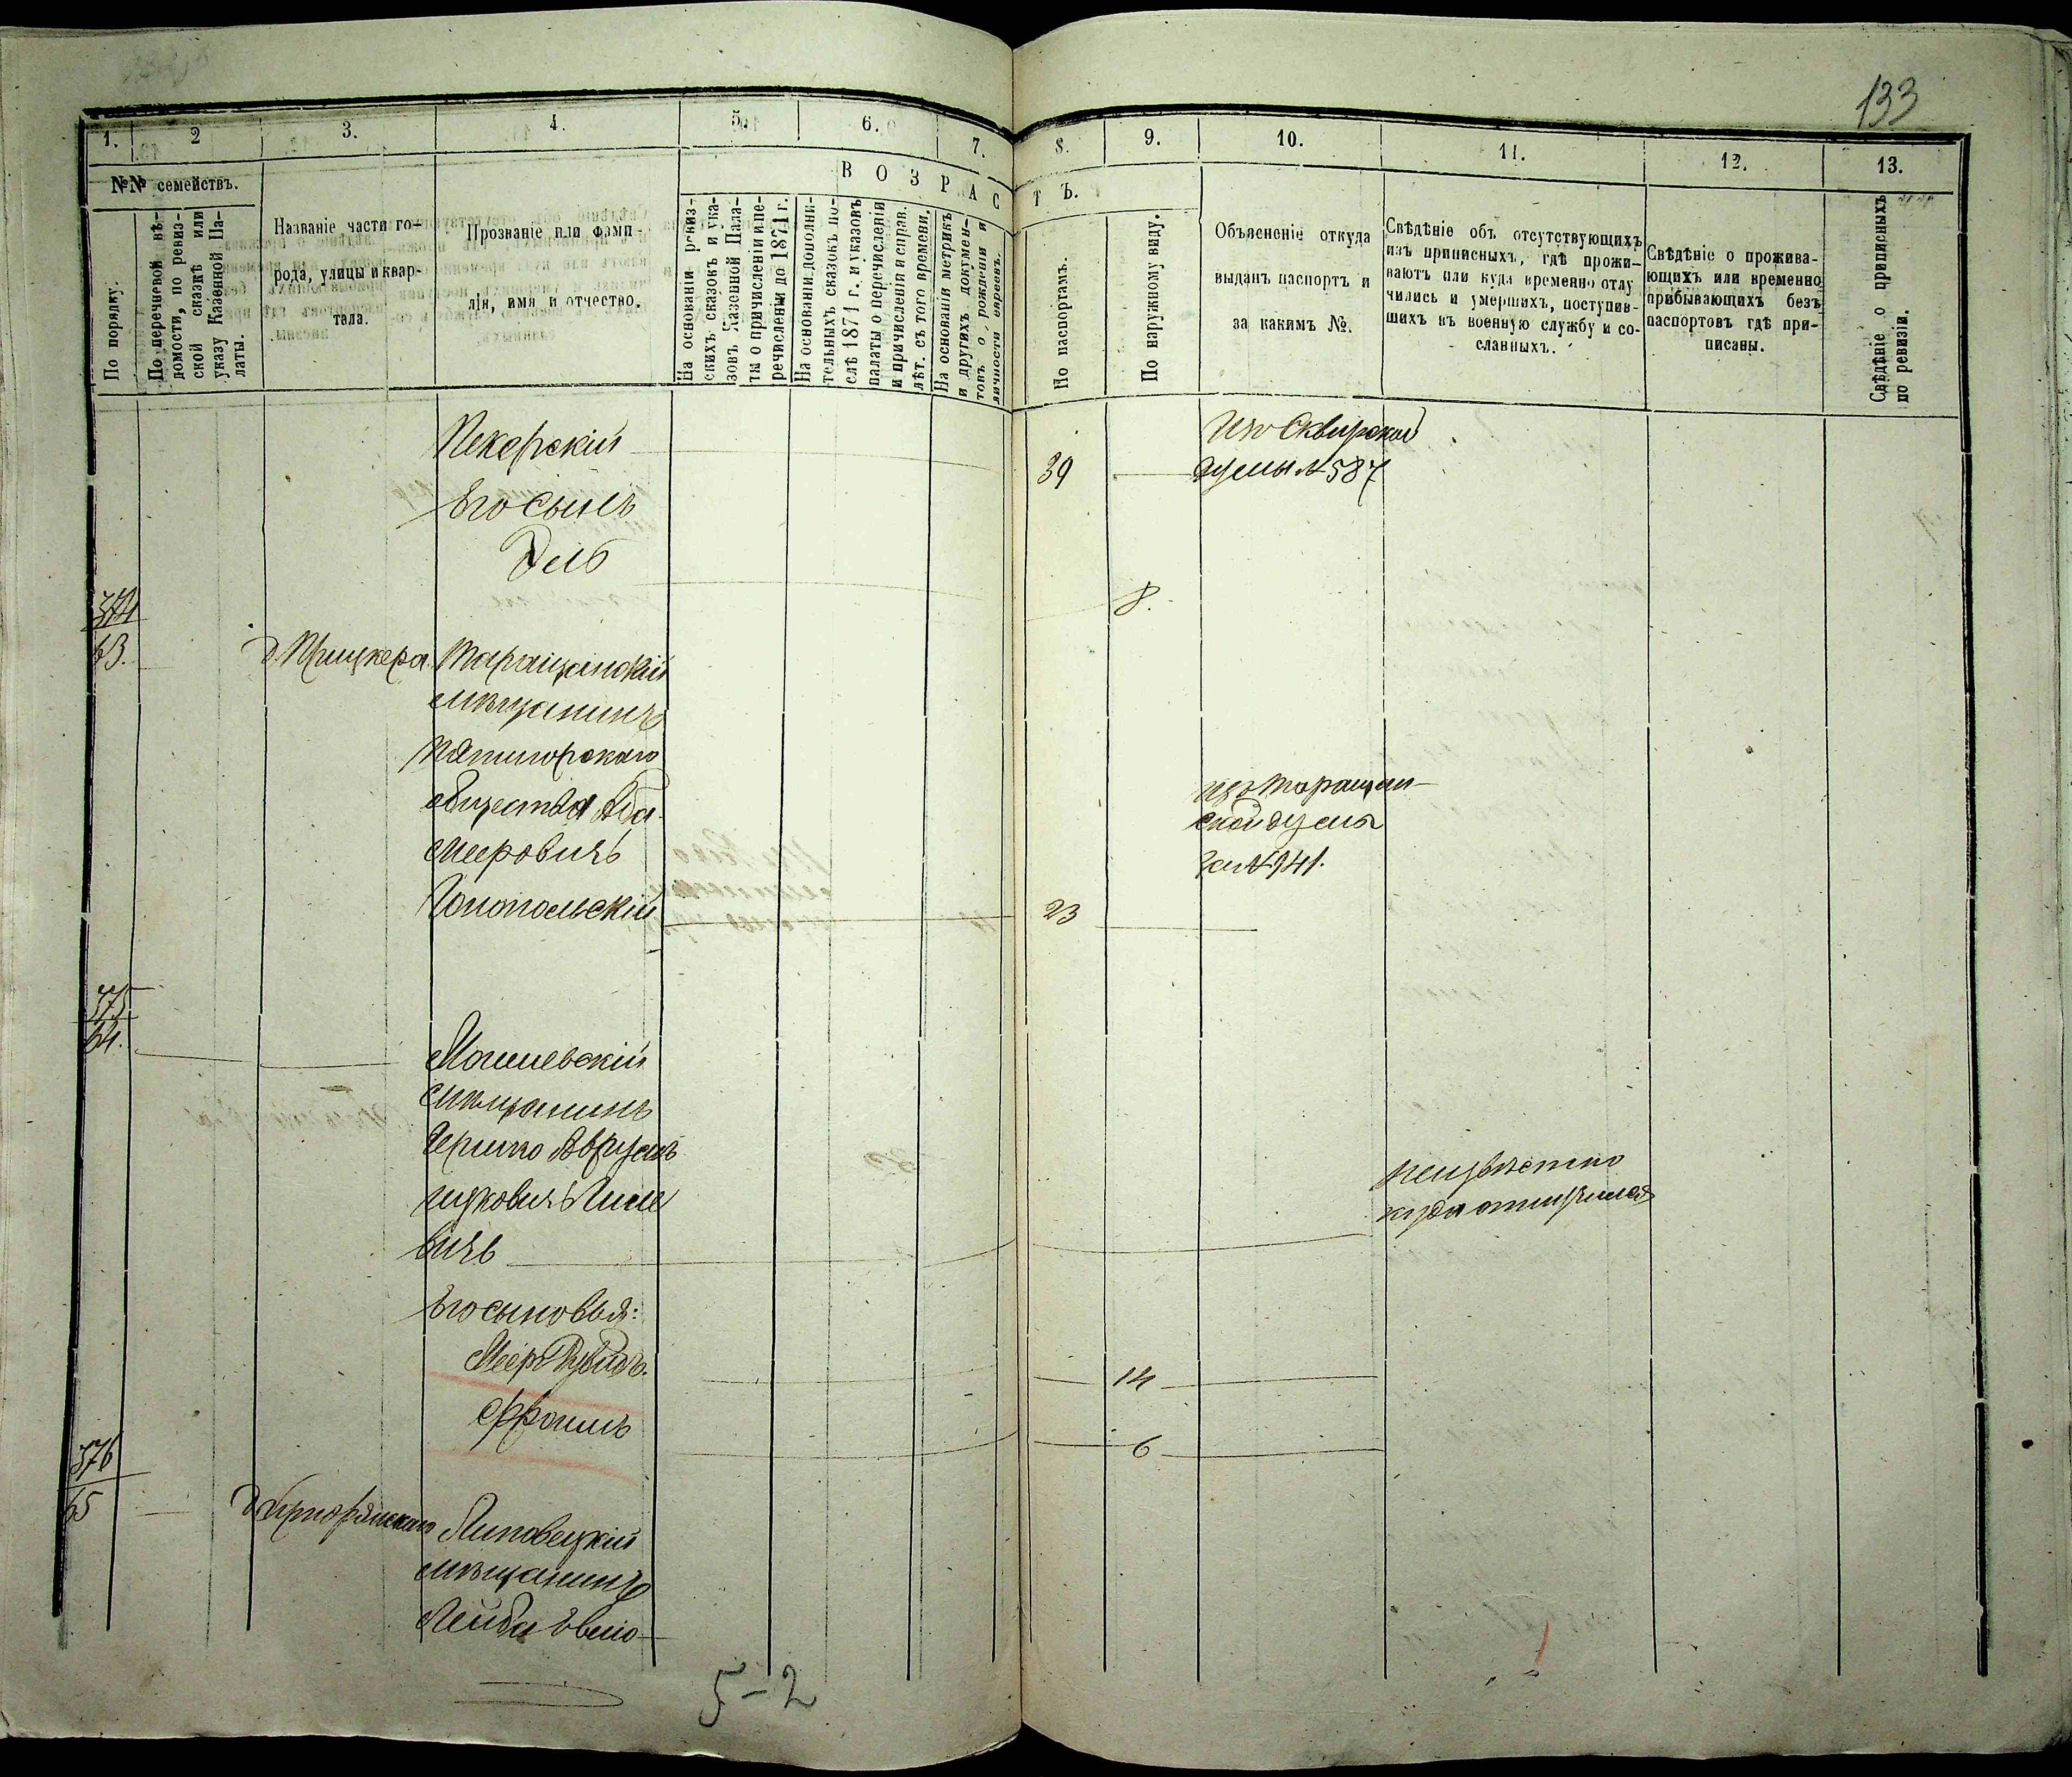 133
1.
2
3.
4.
5.
6.
7.
8.
9.
10.
11.
12.
13.
№№ семействъ.
По порядку.
По перечневой вѣ-
домости, по ревиз-
ской сказкѣ или
указу Казенной Па-
латы.
Названіе части го-
рода, улицы и квар-
тала.
Прозваніе или фами-
лія, имя и отчество.
ВОЗРАСТЪ.
На основаніи ревиз-
скихъ сказокъ и ука-
зовъ Казенной Пала-
ты о причисленіи и пе-
речисленіи до 1871 г.
На основаніи дополни-
тельныхъ сказокъ по-
слѣ 1871 г. и указовъ
палаты о перечисленіи
и причисленія и справ.
лѣт. съ того времени.
На основаніи метрикъ
и другихъ докумен-
товъ о рожденіи и
личности евреевъ.
По паспортамъ.
По наружному виду.
Объясненіе откуда
выданъ паспортъ и
за какимъ №.
Свѣдѣніе объ отсутствующихъ
изъ приписныхъ, гдѣ прожи-
ваютъ или куда временно отлу
чились и умершихъ, поступив-
шихъ въ военную службу и со-
сланныхъ.
Свѣдѣніе о прожива-
ющихъ или временно
прибывающихъ безъ
паспортовъ гдѣ при-
писаны.
Свѣдѣніе о приписныхъ
по ревизіи.
Пекарскій
39
Изъ Сквирской
думы № 587
Его сынъ
8.
374
63.
д Прицкера
Таращанскій
мѣщанинъ
Пятигорскаго
общества Аба
Мееровичъ
Тонопольскій
23
изъ Таращан-
ской думы
за № 941.
375
64.
мѣщанинъ
вичъ
неизвѣстно
куда отлучился
Его сыновья:
Мееръ
14
Фроимъ
6
376
65
Липовецкій
мѣщанинъ
Лейба
5-2